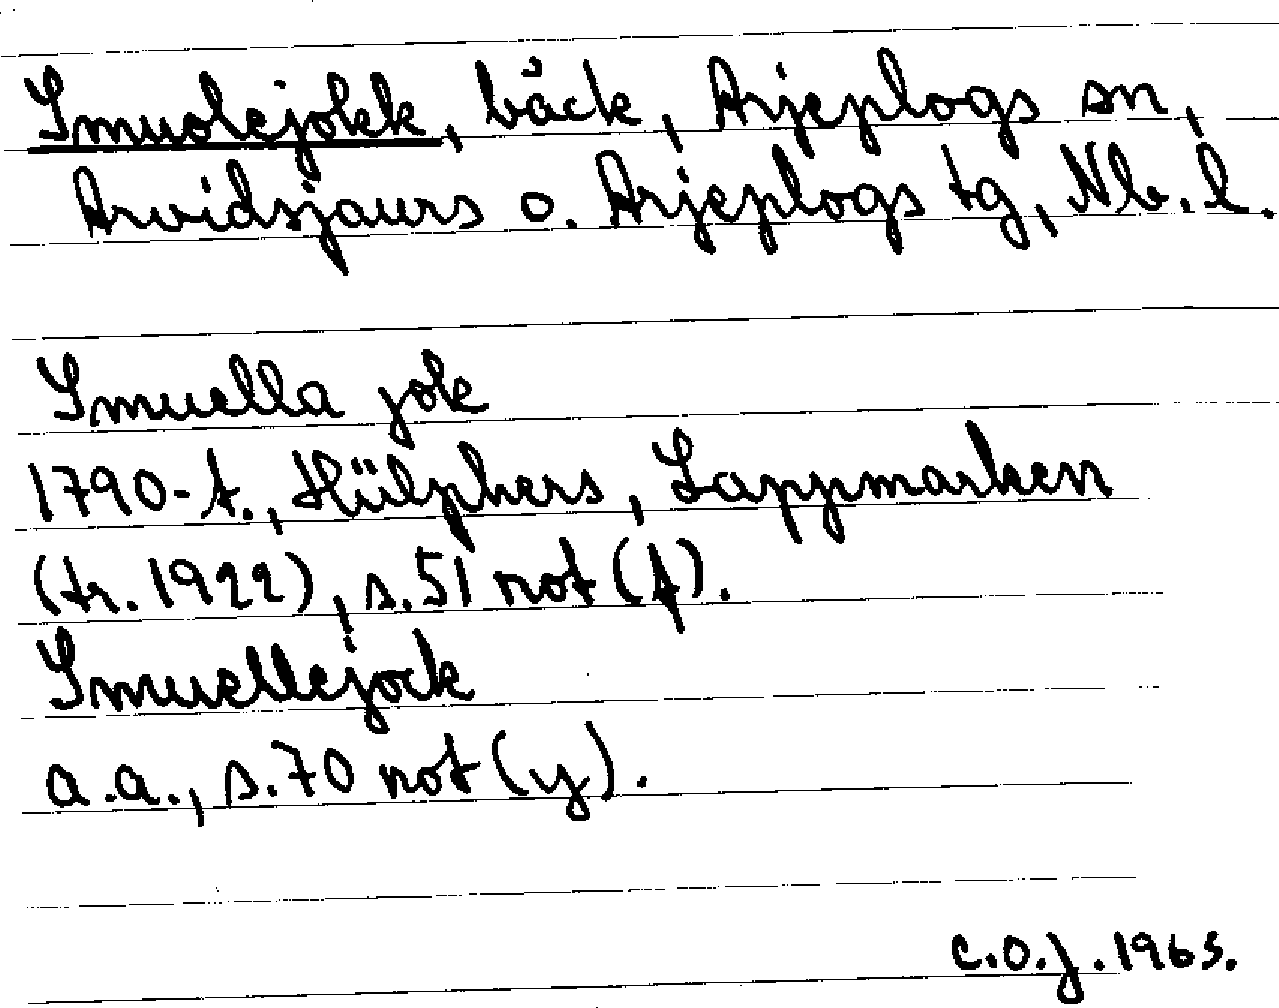 Smuolejokk, bäck, Arjeplogs sn,
Arvidsjaurs o. Arjeplogs tg, Nb. l.
Smuella jok
1790-t., Hülphers, Lappmarken
(tr. 1922), s. 51 not (f).
Smuellejock
a.a., s. 70 not (y).
C.O.J. 1965.